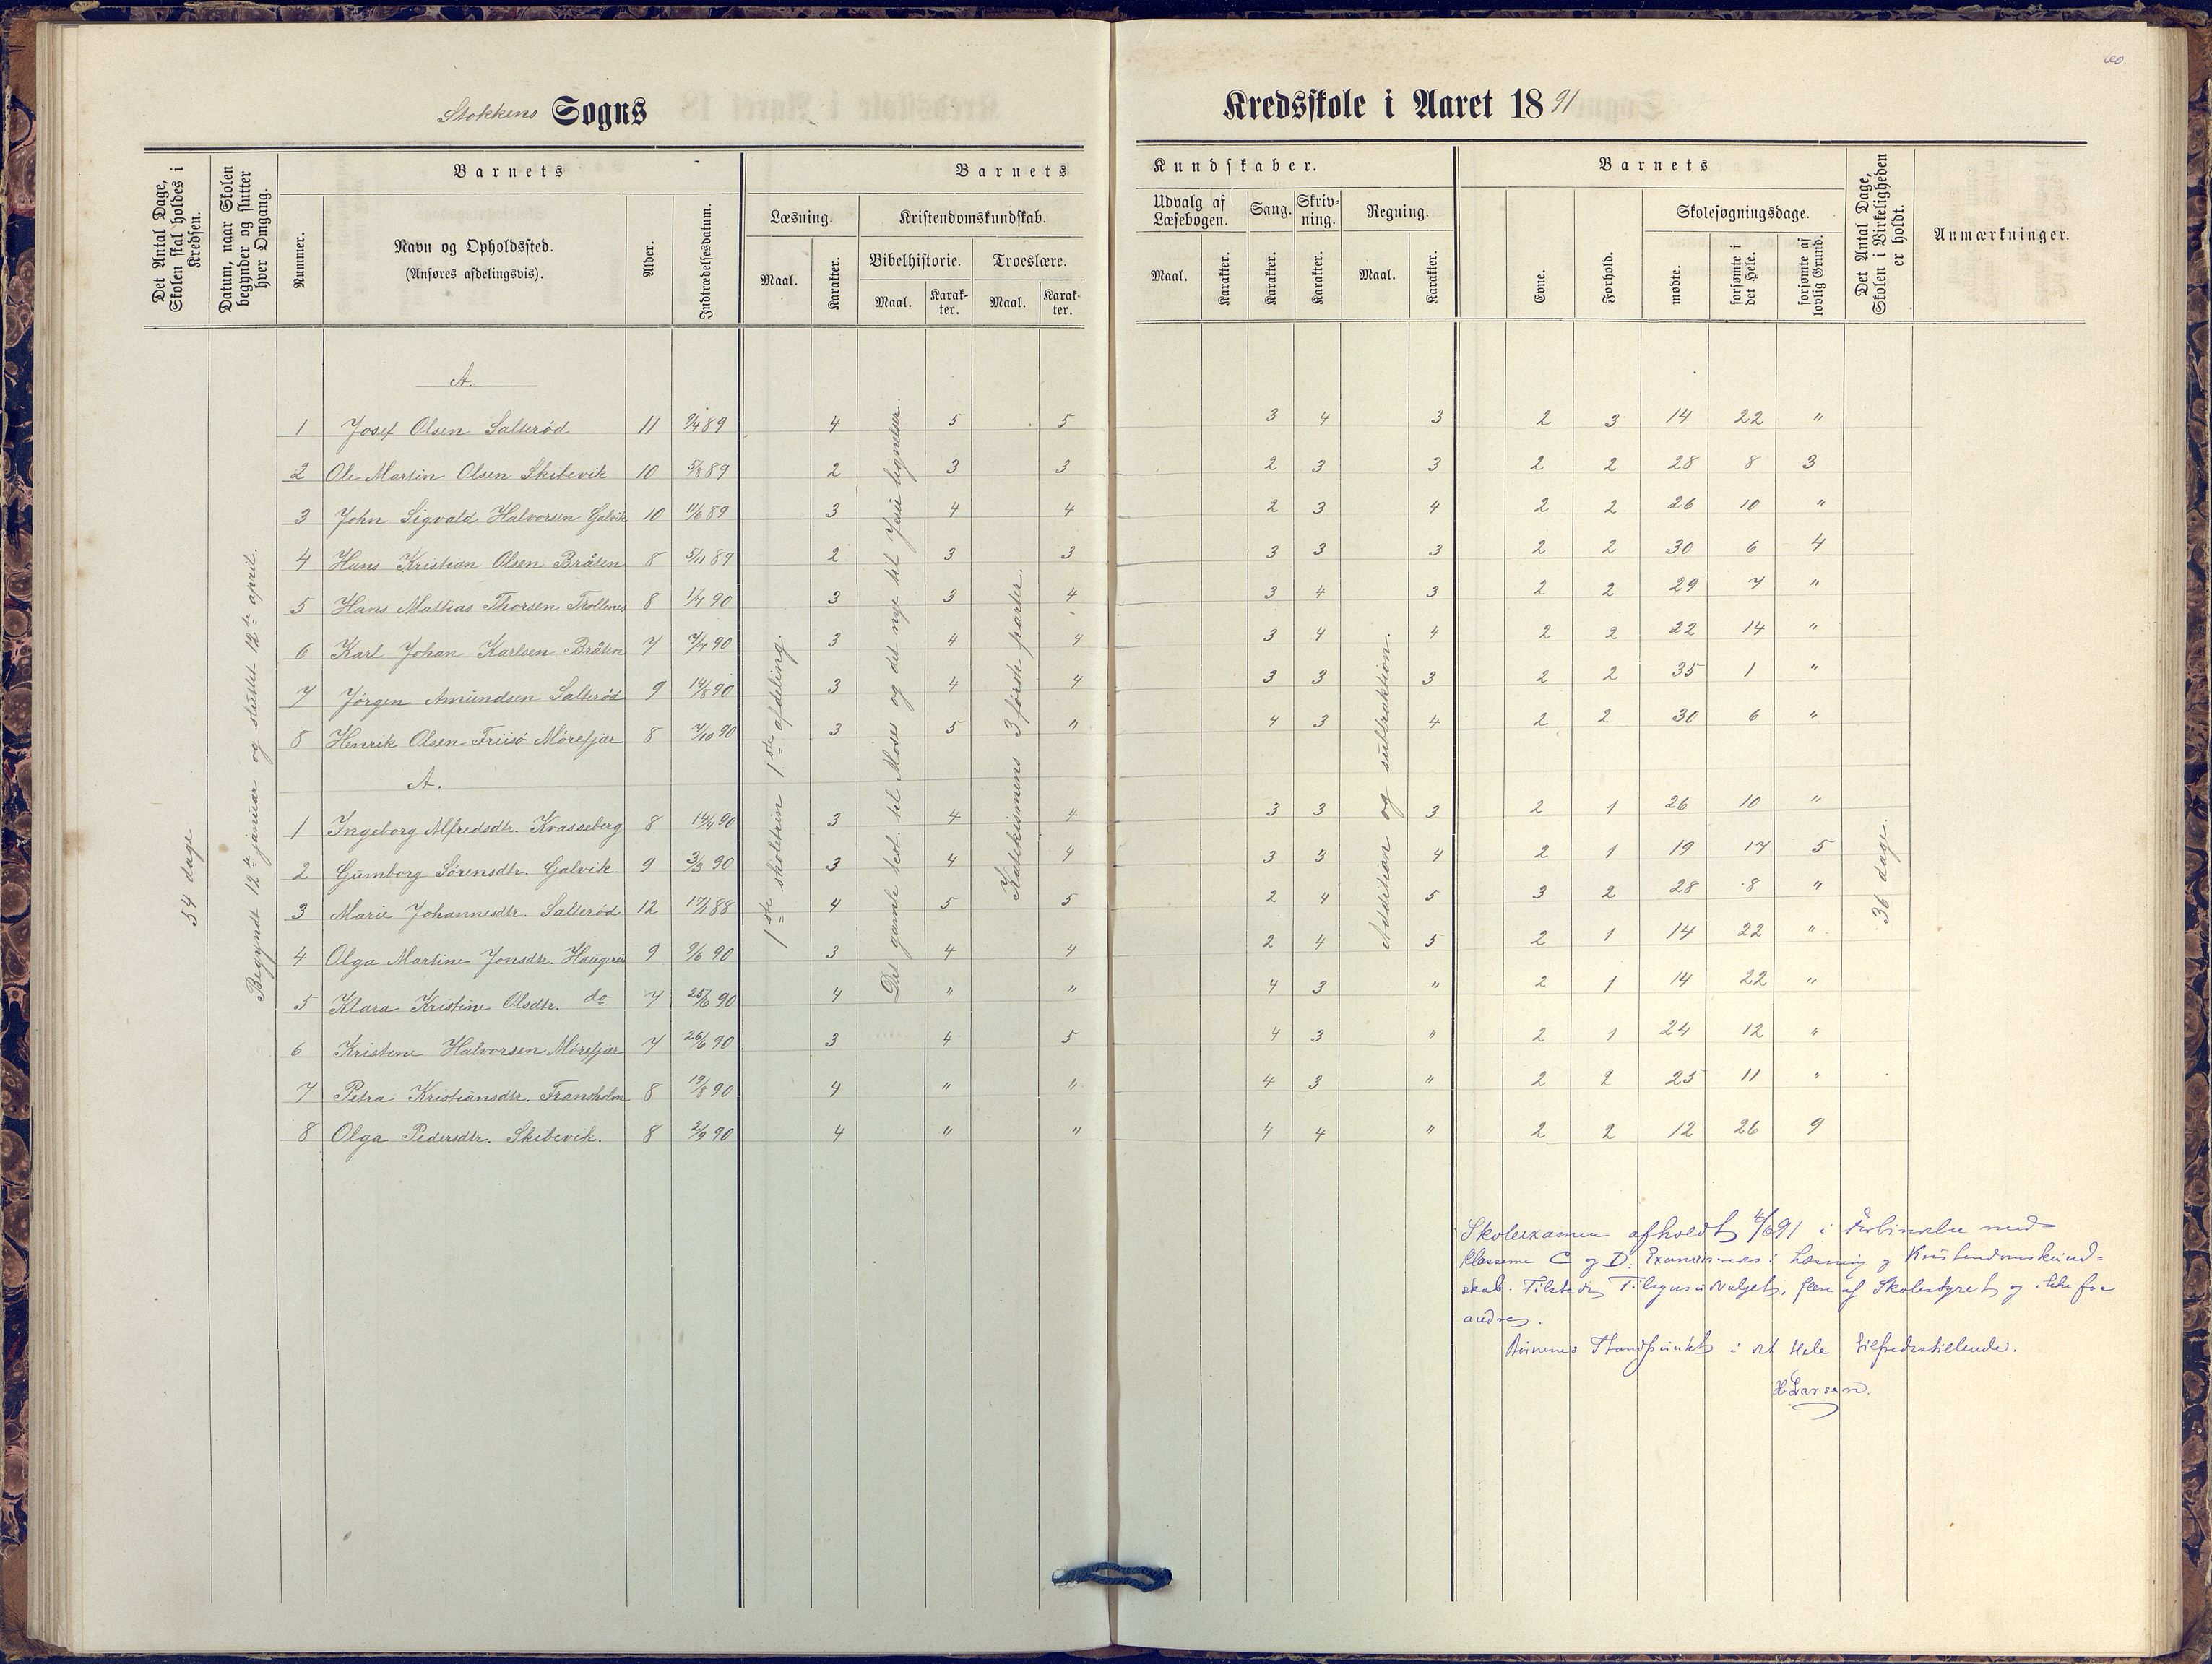 60
Stokkens Sogns Kredsskole i Aaret 1891
Det Antal Dage, Skolen skal holdes i Kredsen.
Datum, naar Skolen begynder og slutter hver Omgang.
Barnets
Nummer.
Navn og Opholdssted.
(Anføres afdelingsvis).
Alder.
Indtrædelsesdatum.
Barnets Kundskaber.
Læsning.
Maal.
Karakter.
Kristendomskundskab.
Bibelhistorie.
Maal.
Karakter.
Troeslære.
Maal.
Karakter.
Udvalg af Læsebogen.
Maal.
Karakter.
Sang.
Karakter.
Skrivning.
Karakter.
Regning.
Maal.
Karakter.
Barnets
Evne.
Forhold.
Skolesøgningsdage.
mødte.
forsømte i det Hele.
forsømte af lovlig Grund.
Det Antal Dage, Skolen i Virkeligheden er holdt.
Anmærkninger.
54 dage
Begyndt 12te januar og sluttet 12te april.
1ste skoletrin 1ste afdeling.
Det gamle test. til Moses og det nye til Jesu lignelser.
Katekismens 3 første parter.
Addition og subtraktion.
36 dage.
A.
1 Josef Olsen Salterød 11 2/4 89 4 5 5 3 4 3 2 3 14 22 "
2 Ole Martin Olsen Skibevik 10 5/8 89 2 3 3 2 3 3 2 2 28 8 3
3 John Sigvald Halvorsen Galvik 10 11/6 89 3 4 4 2 3 4 2 2 26 10 "
4 Hans Kristian Olsen Bråten 8 5/11 89 2 3 3 3 3 3 2 2 30 6 4
5 Hans Mathias Thorsen Trollenes 8 1/4 90 3 3 4 3 4 3 2 2 29 7 "
6 Karl Johan Karlsen Bråten 7 7/7 90 3 4 4 3 4 4 2 2 22 14 "
7 Jørgen Amundsen Salterød 9 14/8 90 3 4 4 3 3 3 2 2 35 1 "
8 Henrik Olsen Friisø Mørefjær 8 7/10 90 3 5 " 4 3 4 2 2 30 6 "
A.
1 Ingeborg Alfredsdtr. Kvasseberg 8 14/4 90 3 4 4 3 3 3 2 1 26 10 "
2 Gumborg Sørensdtr. Galvik. 9 3/3 90 3 4 4 3 3 4 2 1 19 17 5
3 Marie Johannesdtr. Salterød 12 17/1 88 4 5 5 2 4 5 3 2 28 8 "
4 Olga Martine Jonsdtr. Haugenes 9 9/6 90 3 4 4 2 4 5 2 1 14 22 "
5 Klara Kristine Olsdtr. do 7 25/6 90 4 " " 4 3 " 2 1 14 22 "
6 Kristine Halvorsen Mørefjær 7 26/6 90 3 4 5 4 3 " 2 1 24 12 "
7 Petra Kristiansdtr. Fransholm 8 19/8 90 4 " " 4 3 " 2 2 25 11 "
8 Olga Pedersdtr. Skibevik. 8 2/9 90 4 " " 4 4 " 2 2 12 26 9
Skoleexamen afholdt 4/6 91 i Forbindelse med
Klasserne C og D. Examineredes i Læsning og Kristendomskund-
skab. Tilstede Tilsynsudvalget, flere af Skolestyret og ikke faa
andre.
Børnenes Standpunkt i det Hele tilfredsstillende.
H Larsen.